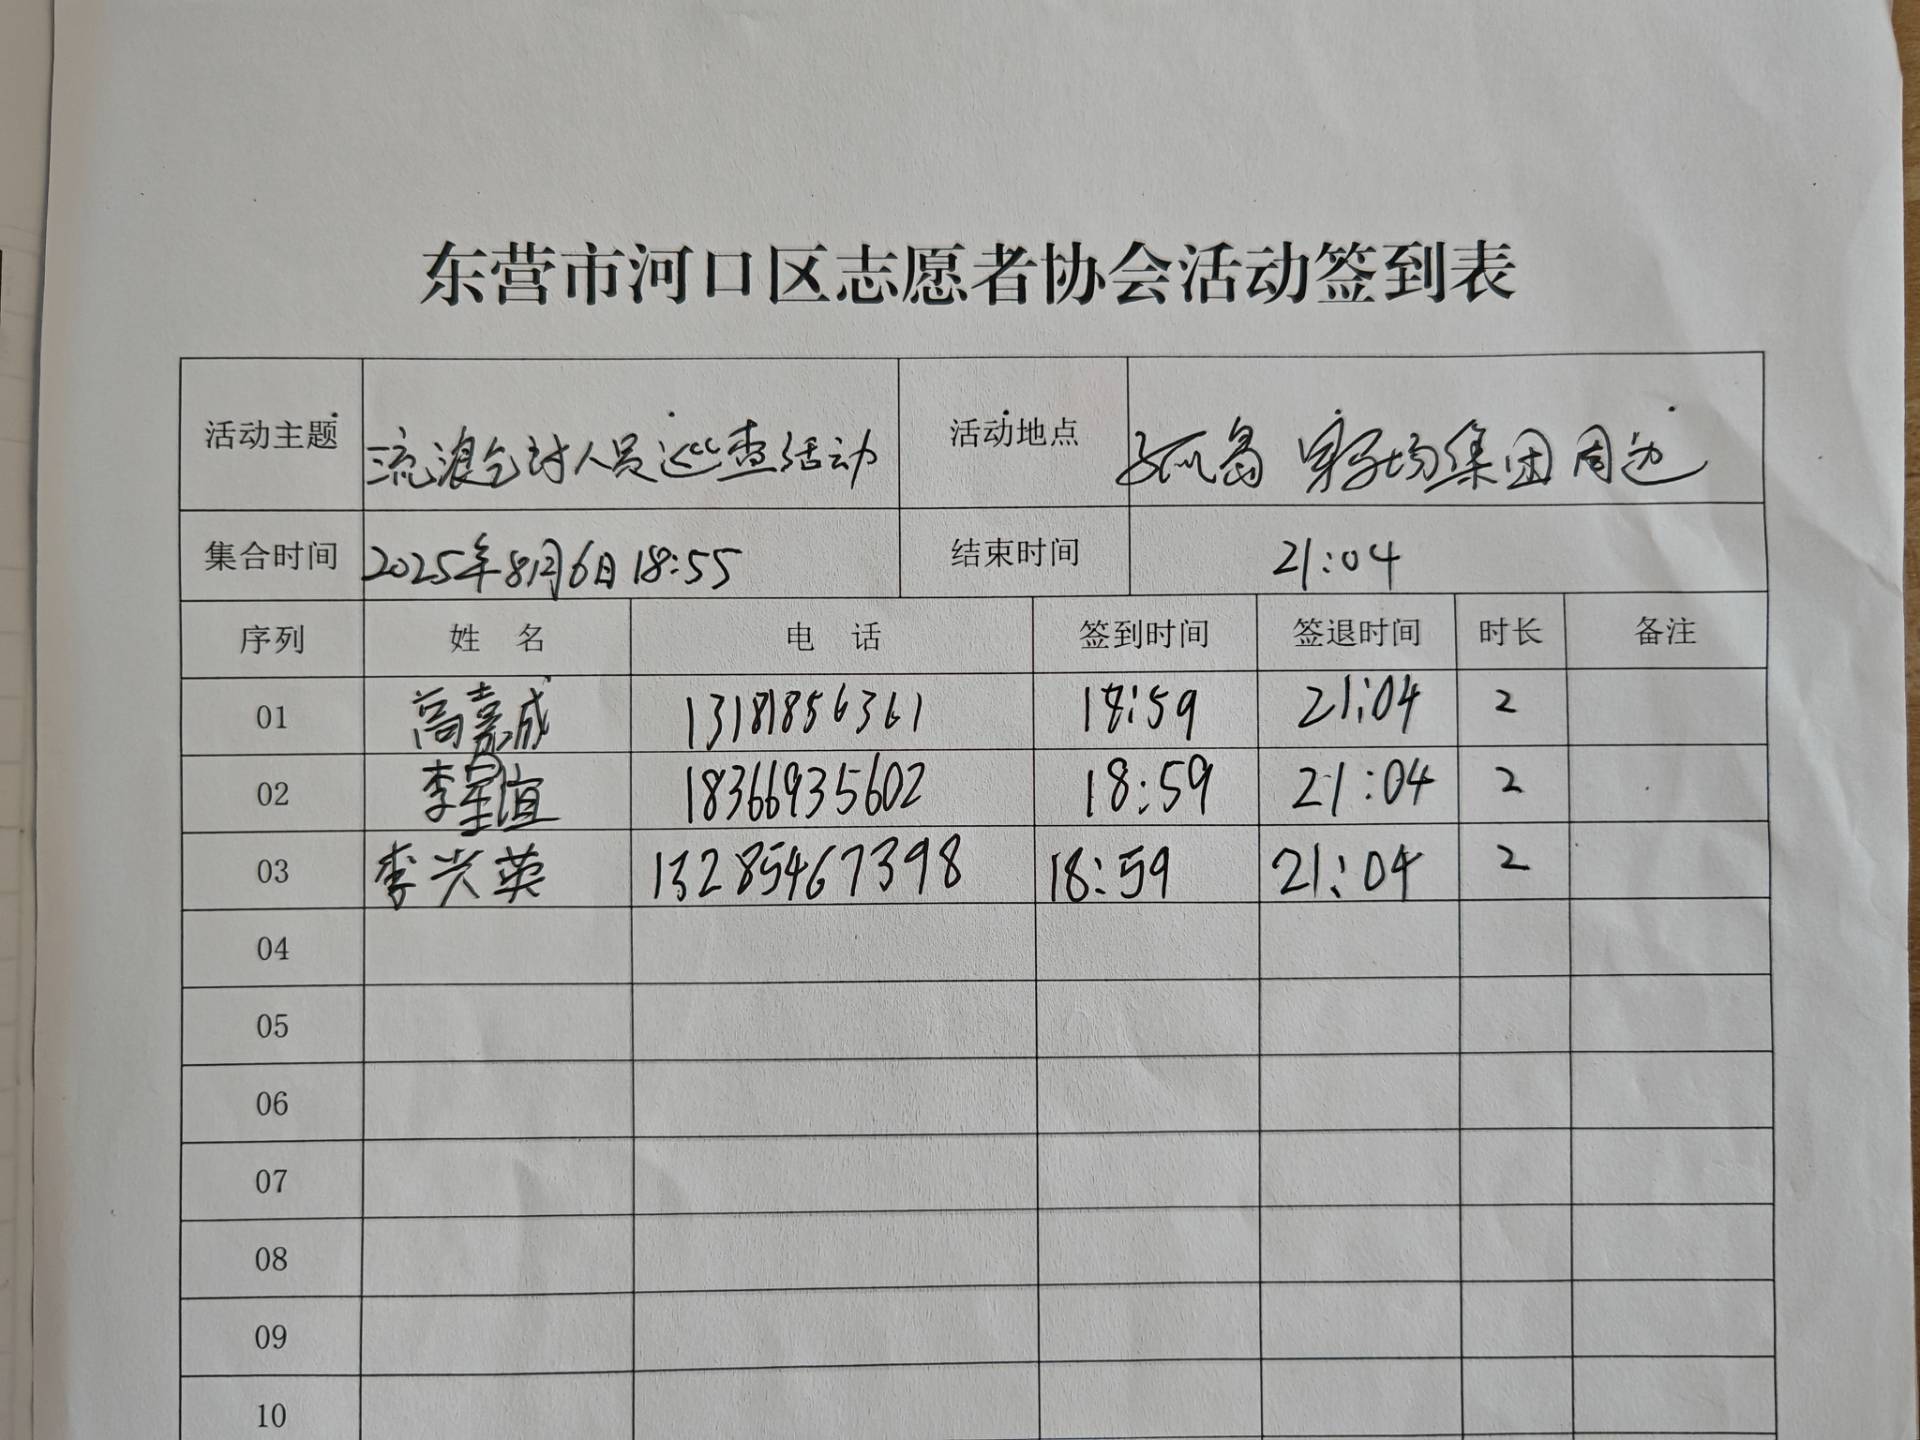 东营市河口区志愿者协会活动签到表
活动主题 流浪乞讨人员巡查活动 活动地点 孤岛 军马场集团周边
集合时间 2025年8月6日18:55 结束时间 21:04
序列 姓名 电话 签到时间 签退时间 时长 备注
01 高嘉成 13181856361 18:59 21:04 2
02 李星谊 18366935602 18:59 21:04 2
03 李兴英 13285467398 18:59 21:04 2
04
05
06
07
08
09
10